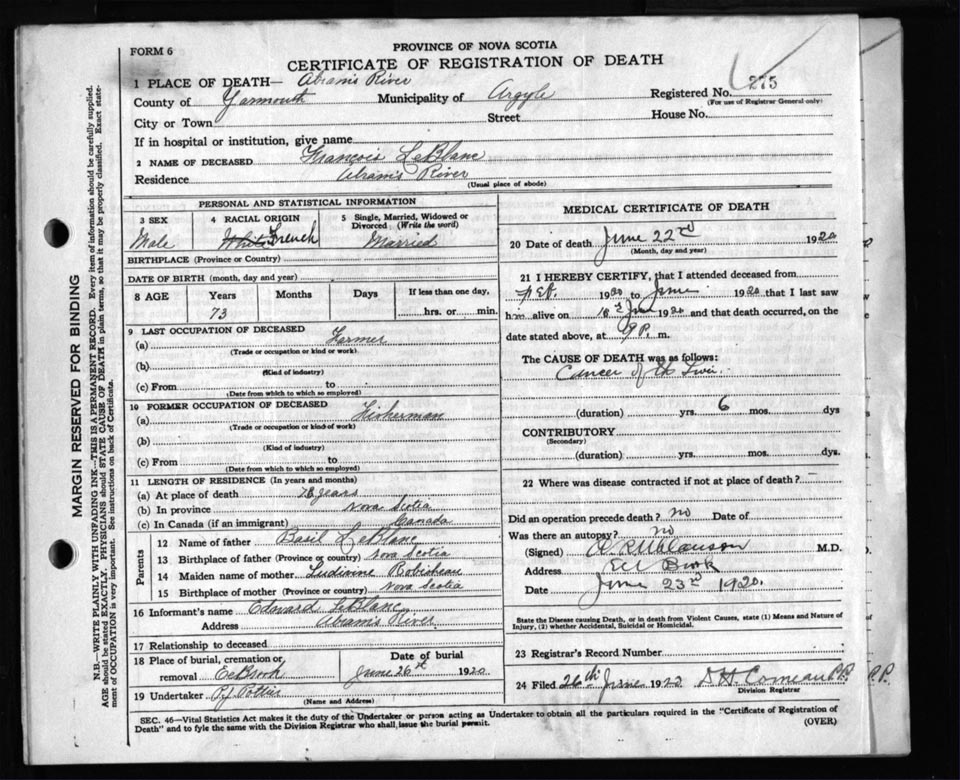 FORM 6
PROVINCE OF NOVA SCOTIA
CERTIFICATE OF REGISTRATION OF DEATH
1 PLACE OF DEATH— Abram's River
County of Yarmouth Municipality of Argyle Registered No. 275
(For use of Registrar General only)
City or Town Street House No.
If in hospital or institution, give name
2 NAME OF DECEASED François LeBlanc
Residence Abram's River
(Usual place of abode)
PERSONAL AND STATISTICAL INFORMATION
3 SEX 4 RACIAL ORIGIN 5 Single, Married, Widowed or Divorced (Write the word)
Male White French Married
BIRTHPLACE (Province or Country)
DATE OF BIRTH (month, day and year)
8 AGE Years Months Days If less than one day,
73 hrs. or min.
9 LAST OCCUPATION OF DECEASED
(a) Farmer
(Trade or occupation or kind or work)
(b)
(Kind of industry)
(c) From to
(Date from which to which so employed)
10 FORMER OCCUPATION OF DECEASED
(a) Fisherman
(Trade or occupation or kind of work)
(b)
(Kind of industry)
(c) From to
(Date from which to which so employed)
11 LENGTH OF RESIDENCE (In years and months)
(a) At place of death years
(b) In province Nova Scotia
(c) In Canada (if an immigrant) Canada
Parents
12 Name of father Basil LeBlanc
13 Birthplace of father (Province or country) Nova Scotia
14 Maiden name of mother Ludivine Robicheau
15 Birthplace of mother (Province or country) Nova Scotia
16 Informant's name Edward LeBlanc
Address Abram's River
17 Relationship to deceased
18 Place of burial, cremation or removal Eel Brook Date of burial June 26th 1920
19 Undertaker P.J. Pottier
(Name and Address)
MEDICAL CERTIFICATE OF DEATH
20 Date of death June 22nd 1920
(Month, day and year)
21 I HEREBY CERTIFY, that I attended deceased from
Feb. 1920 to June 1920 that I last saw
him alive on 18th June 1920 and that death occurred, on the
date stated above, at 9 P. m.
The CAUSE OF DEATH was as follows:
Cancer of the Liver
(duration) yrs. 6 mos. dys
CONTRIBUTORY
(Secondary)
(duration) yrs. mos. dys.
22 Where was disease contracted if not at place of death?
Did an operation precede death? no Date of
Was there an autopsy? no
(Signed) M.D.
Address Eel Brook
Date June 23rd 1920.
State the Disease causing Death, or in death from Violent Causes, state (1) Means and Nature of
Injury, (2) whether Accidental, Suicidal or Homicidal.
23 Registrar's Record Number
24 Filed 26th June 1920 D H Comeau P.P. P.P.
Division Registrar
SEC. 46—Vital Statistics Act makes it the duty of the Undertaker or person acting as Undertaker to obtain all the particulars required in the "Certificate of Registration of
Death" and to fyle the same with the Division Registrar who shall issue the burial permit.
(OVER)
MARGIN RESERVED FOR BINDING
N.B.—WRITE PLAINLY WITH UNFADING INK—THIS IS A PERMANENT RECORD. Every item of information should be carefully supplied.
AGE should be stated EXACTLY. PHYSICIANS should STATE CAUSE OF DEATH in plain terms, so that it may be properly classified. Exact state-
ment of OCCUPATION is very important. See instructions on back of Certificate.